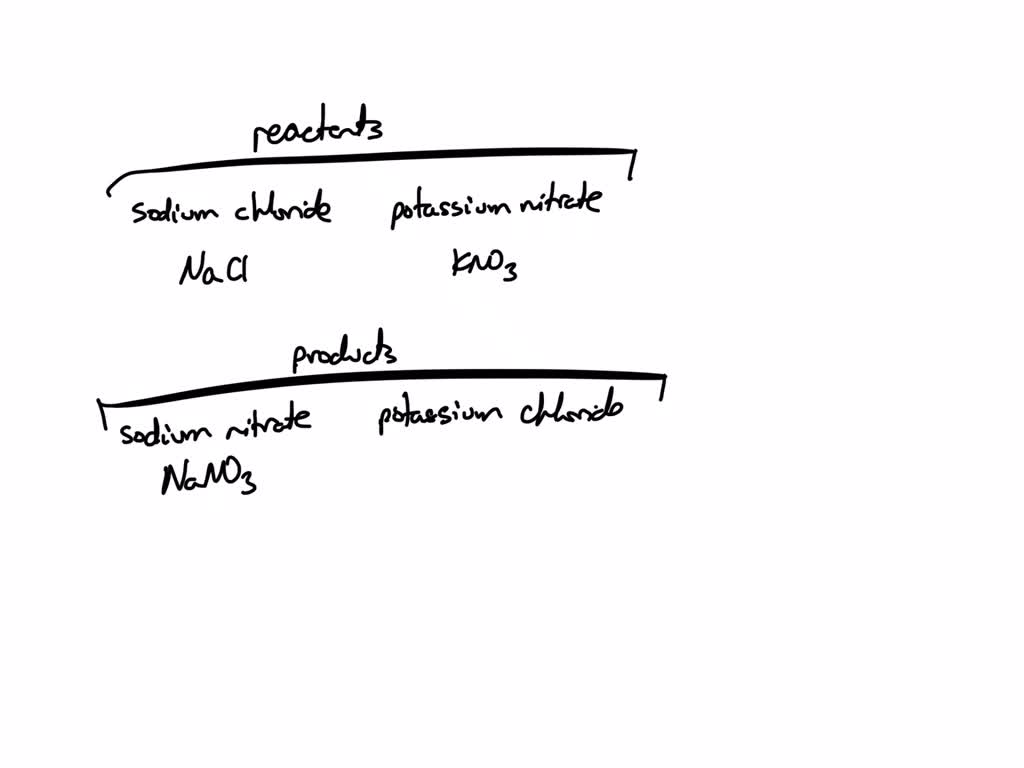 reactents
sodium chloride potassium nitrate
NaCl KNO3
products
sodium nitrate potassium chloride
NaNO3